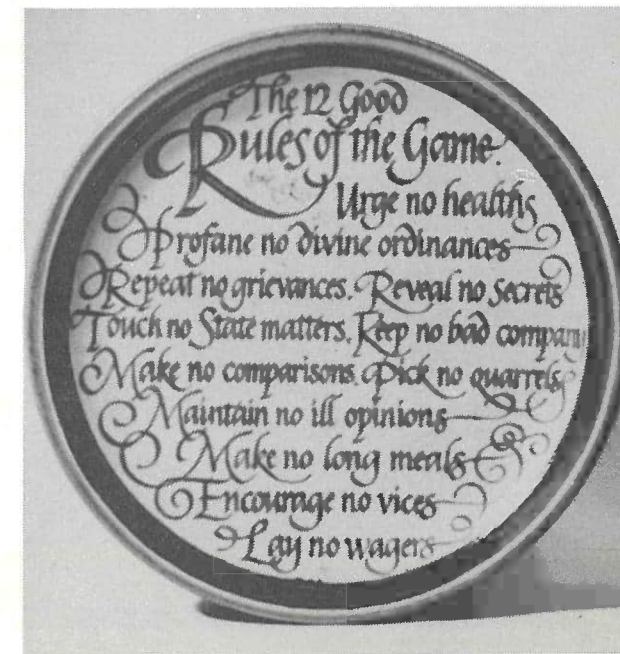 The 12 Good
Rules of the Game.
Urge no healths
Profane no divine ordinances
Repeat no grievances. Reveal no Secrets
Touch no State matters. Keep no bad company
Make no comparisons. Pick no quarrels.
Maintain no ill opinions
Make no long meals
Encourage no vices
Lay no wagers